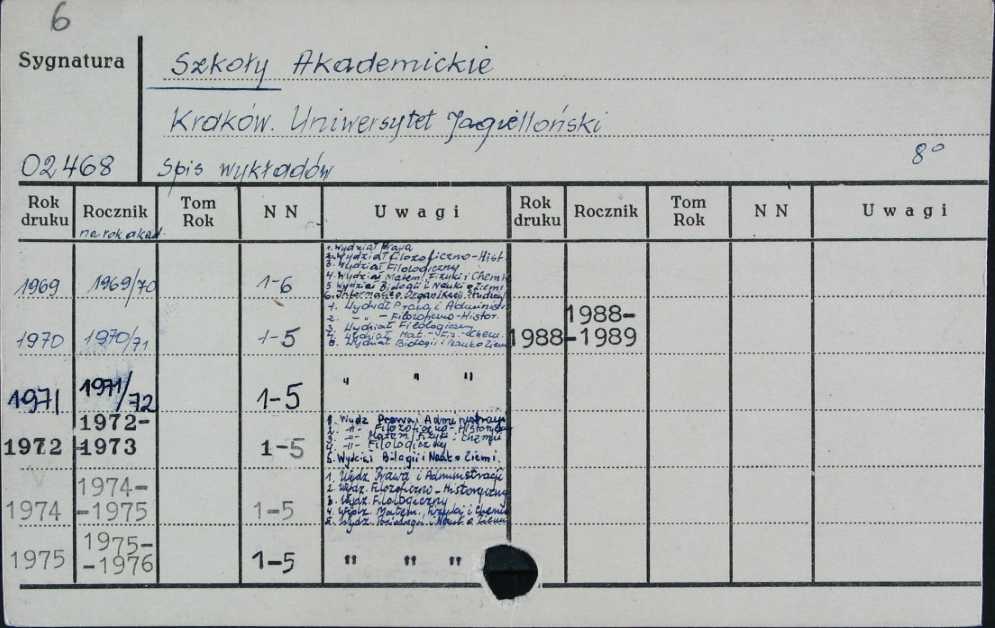 6
Sygnatura
Szkoły Akademickie
Kraków. Uniwersytet Jagielloński
02468 Spis wykładów 8°
Rok druku Rocznik Tom Rok N N Uwagi Rok druku Rocznik Tom Rok N N Uwagi
na rok akad.
1969 1969/70 1-6
1. Wydział Prawa
2. Wydział Filozoficzno-Hist.
3. Wydział Filologiczny
4. Wydział Matem. Fizyki i Chemii
5 Wydział Biologii i Nauki o Ziemi
6.
1970 1970/71 1-5
1. Wydział Prawa i Administr
2. -"- - Filozoficzno-Histor.
3. Wydział Filologiczny
4. Wydział Mat.-Fiz.-Chem.
5. Wydział Biologii i Nauk o Ziemi
1988 1988-
-1989
1971 1971/72 1-5 " " "
1972 1972-
-1973 1-5
1. Wydz Prawa i Administracji
2. -"- Filozoficzno-Historyczny
3. -"- Matem Fizyki i Chemii
4. -"- Filologiczny
5. Wydział Bilogii i Nauk o Ziemi.
1974 1974-
-1975 1-5
1. Wydz. Prawa i Administracji
2 Wydz. Filozoficzno-Historyczny
3. Wydz. Filologiczny
4. Wydz. Matem., Fizyki i Chemii
5. Wydz. i Nauk o Ziemi
1975 1975-
-1976 1-5 " " "